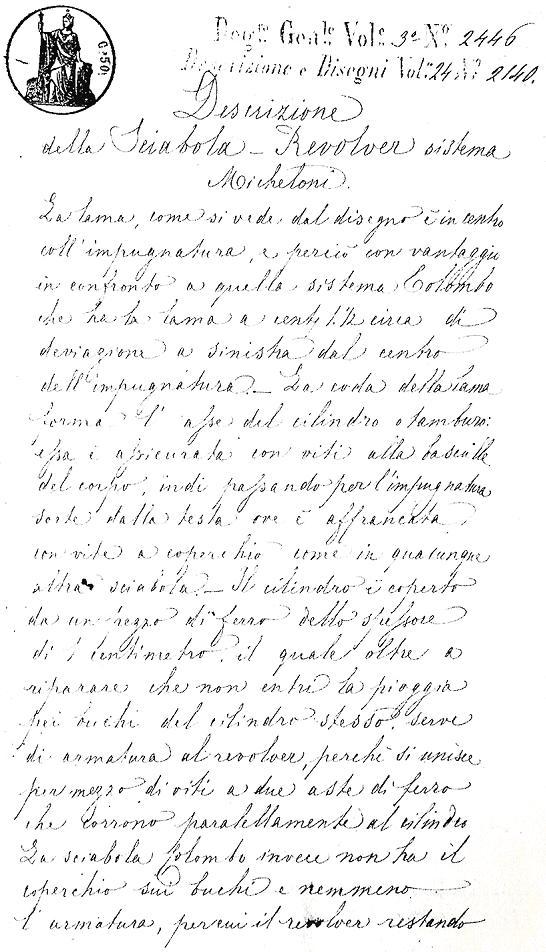 C. 50
Reg.º Gen.le Vol.e 3º N.º 2446
Descrizione e Disegni Vol.e 24 N.º 2140.
Descrizione
della Sciabola – Revolver sistema
Micheloni.
La lama, come si vede dal disegno è in centro
coll'impugnatura, e perciò con vantaggio
in confronto a quella sistema Colombo
che ha la lama a cent. 1 1/2 circa di
deviazione a sinistra dal centro
dell'impugnatura. – La coda della lama
forma l'asse del cilindro o tamburo:
essa è assicurata con viti alla bascule
del corpo, indi passando per l'impugnatura
sorte dalla testa ove è affrancata
con vite a coperchio come in qualunque
altra sciabola. – Il cilindro è coperto
da un pezzo di ferro dello spessore
di 1 centimetro, il quale oltre a
riparare che non entri la pioggia
pei buchi del cilindro stesso, serve
di armatura al revolver, perchè si unisce
per mezzo di viti a due aste di ferro
che corrono paralellamente al cilindro
La sciabola Colombo invece non ha il
coperchio sui buchi e nemmeno
l'armatura, per cui il revolver restando